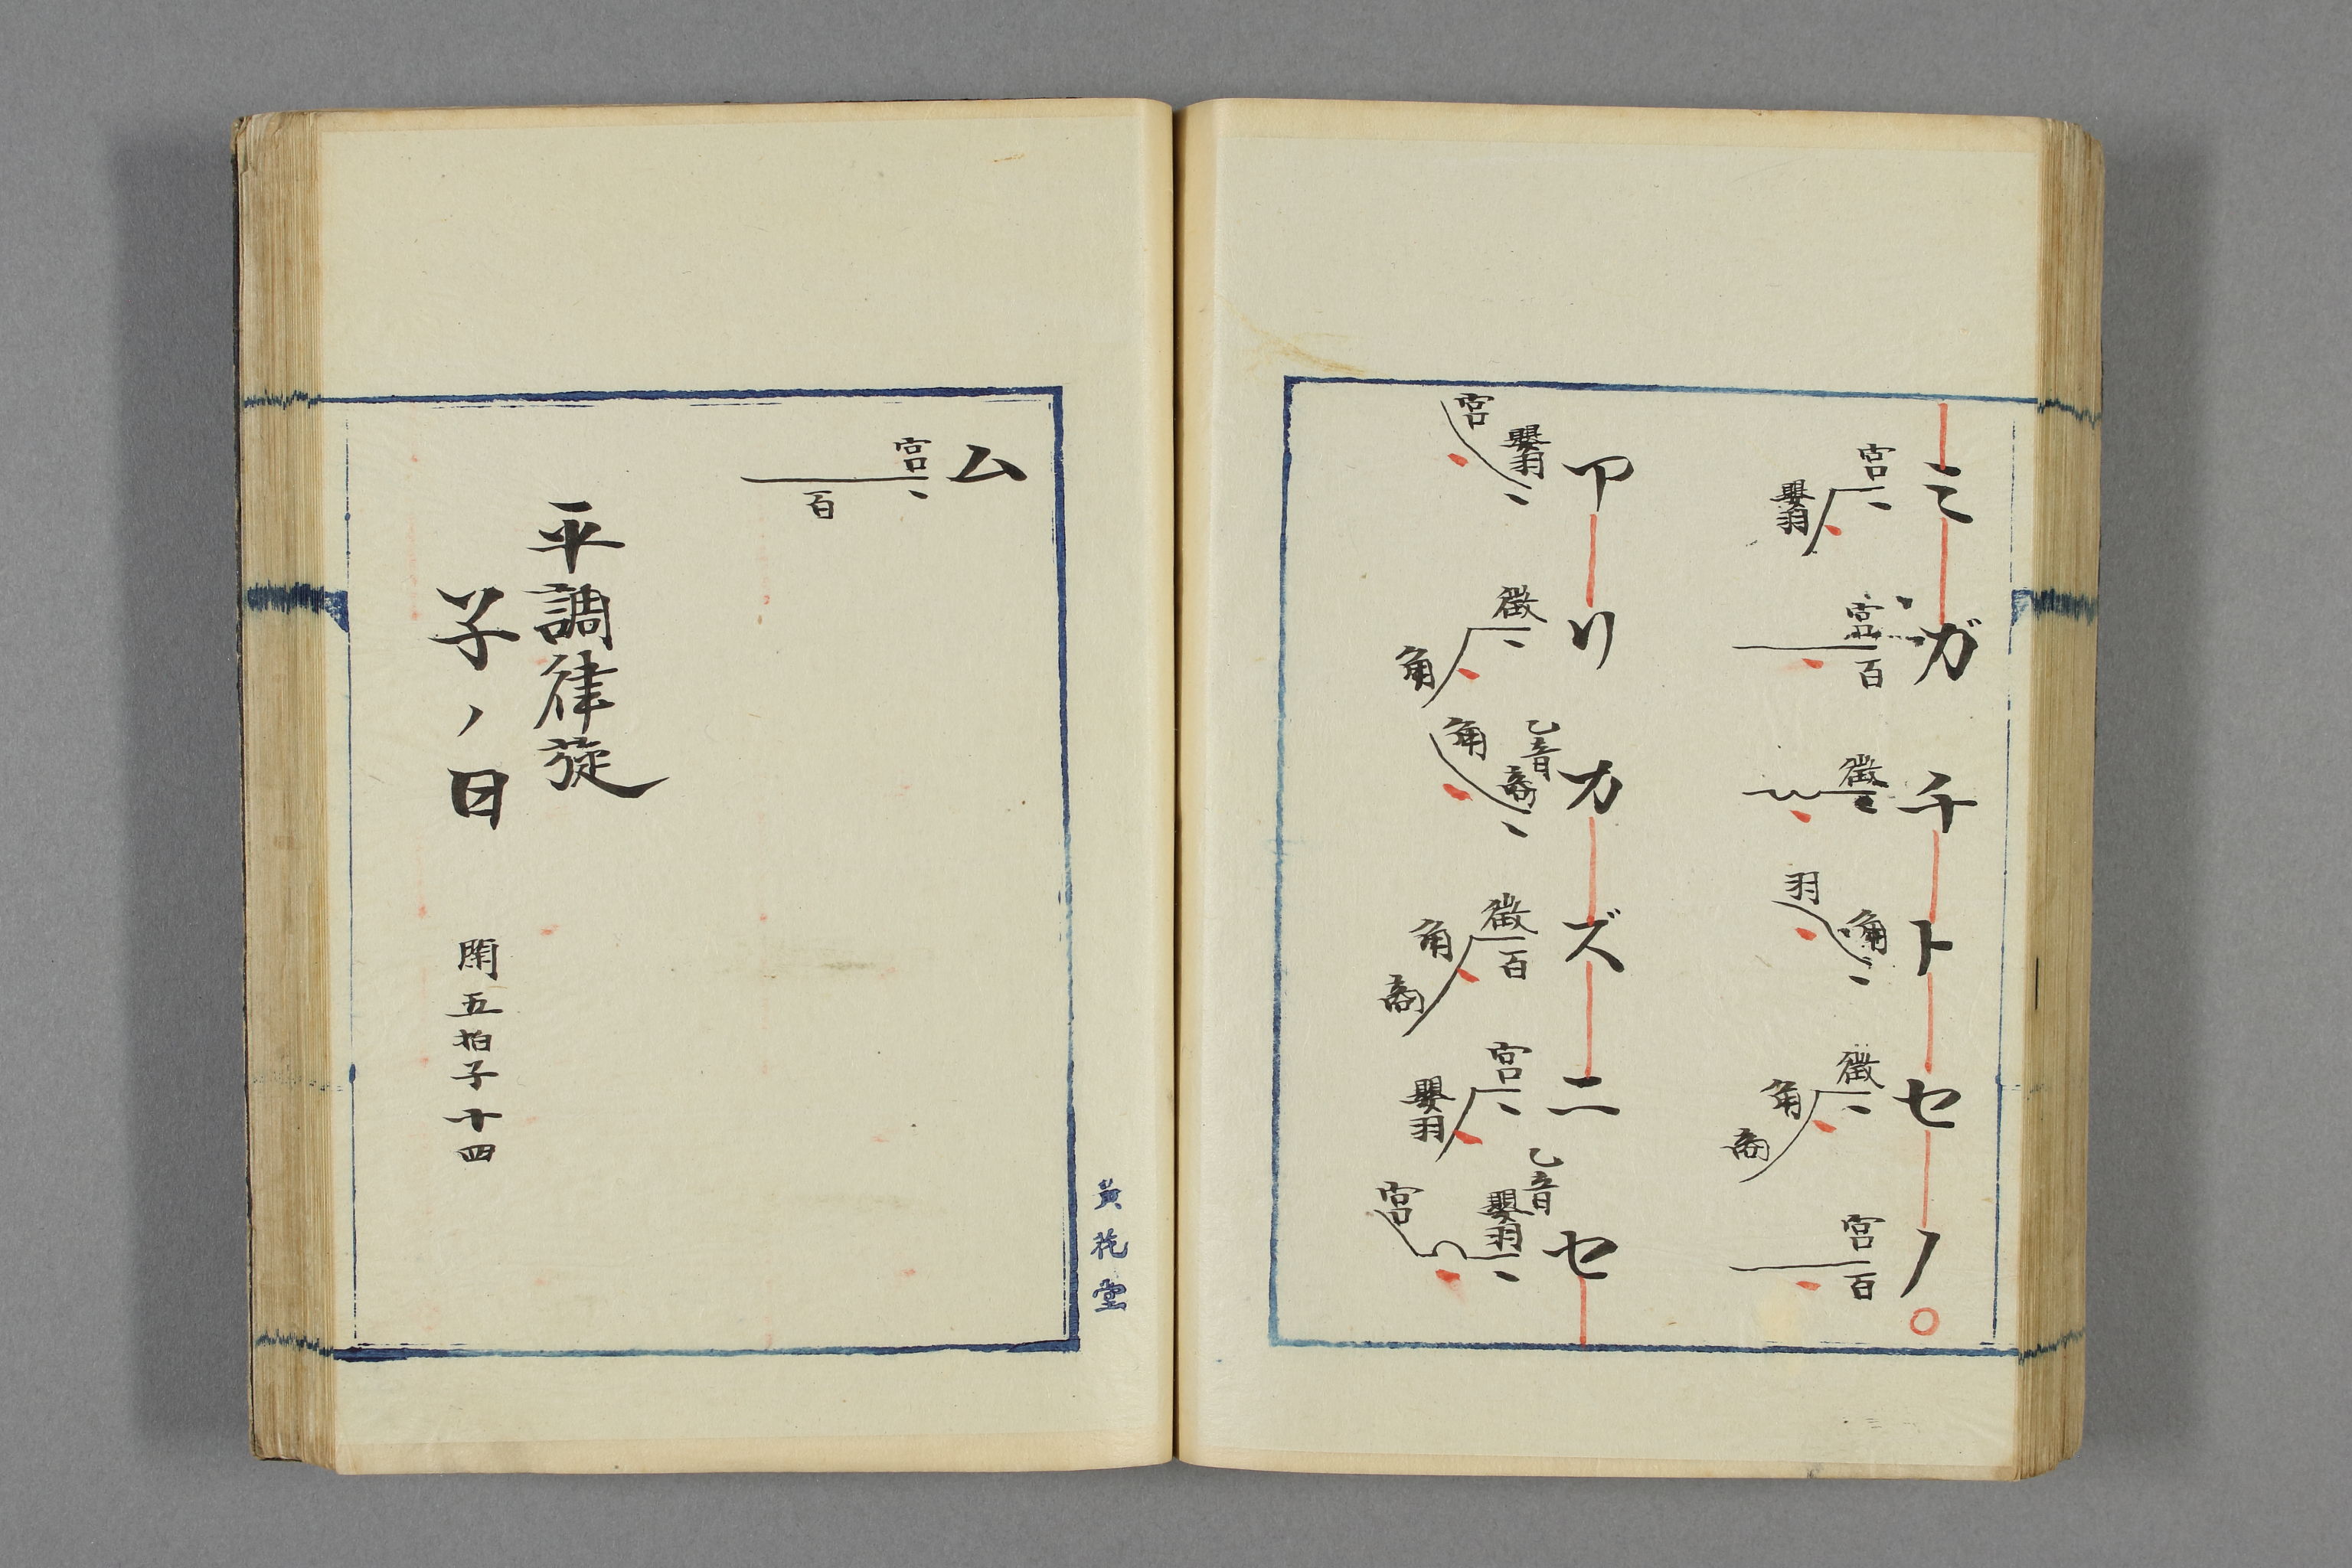 ミガチトセノ
宮 嬰羽
宮 百
徴
角 羽
徴 角 商
宮 百
アリカズニセ
嬰羽 宮
徴 角
乙音 商 角
徴 百 角 商
宮 嬰羽
乙音 嬰羽 宮
ム
宮 百
平調律旋
子ノ日 閑五拍子十四